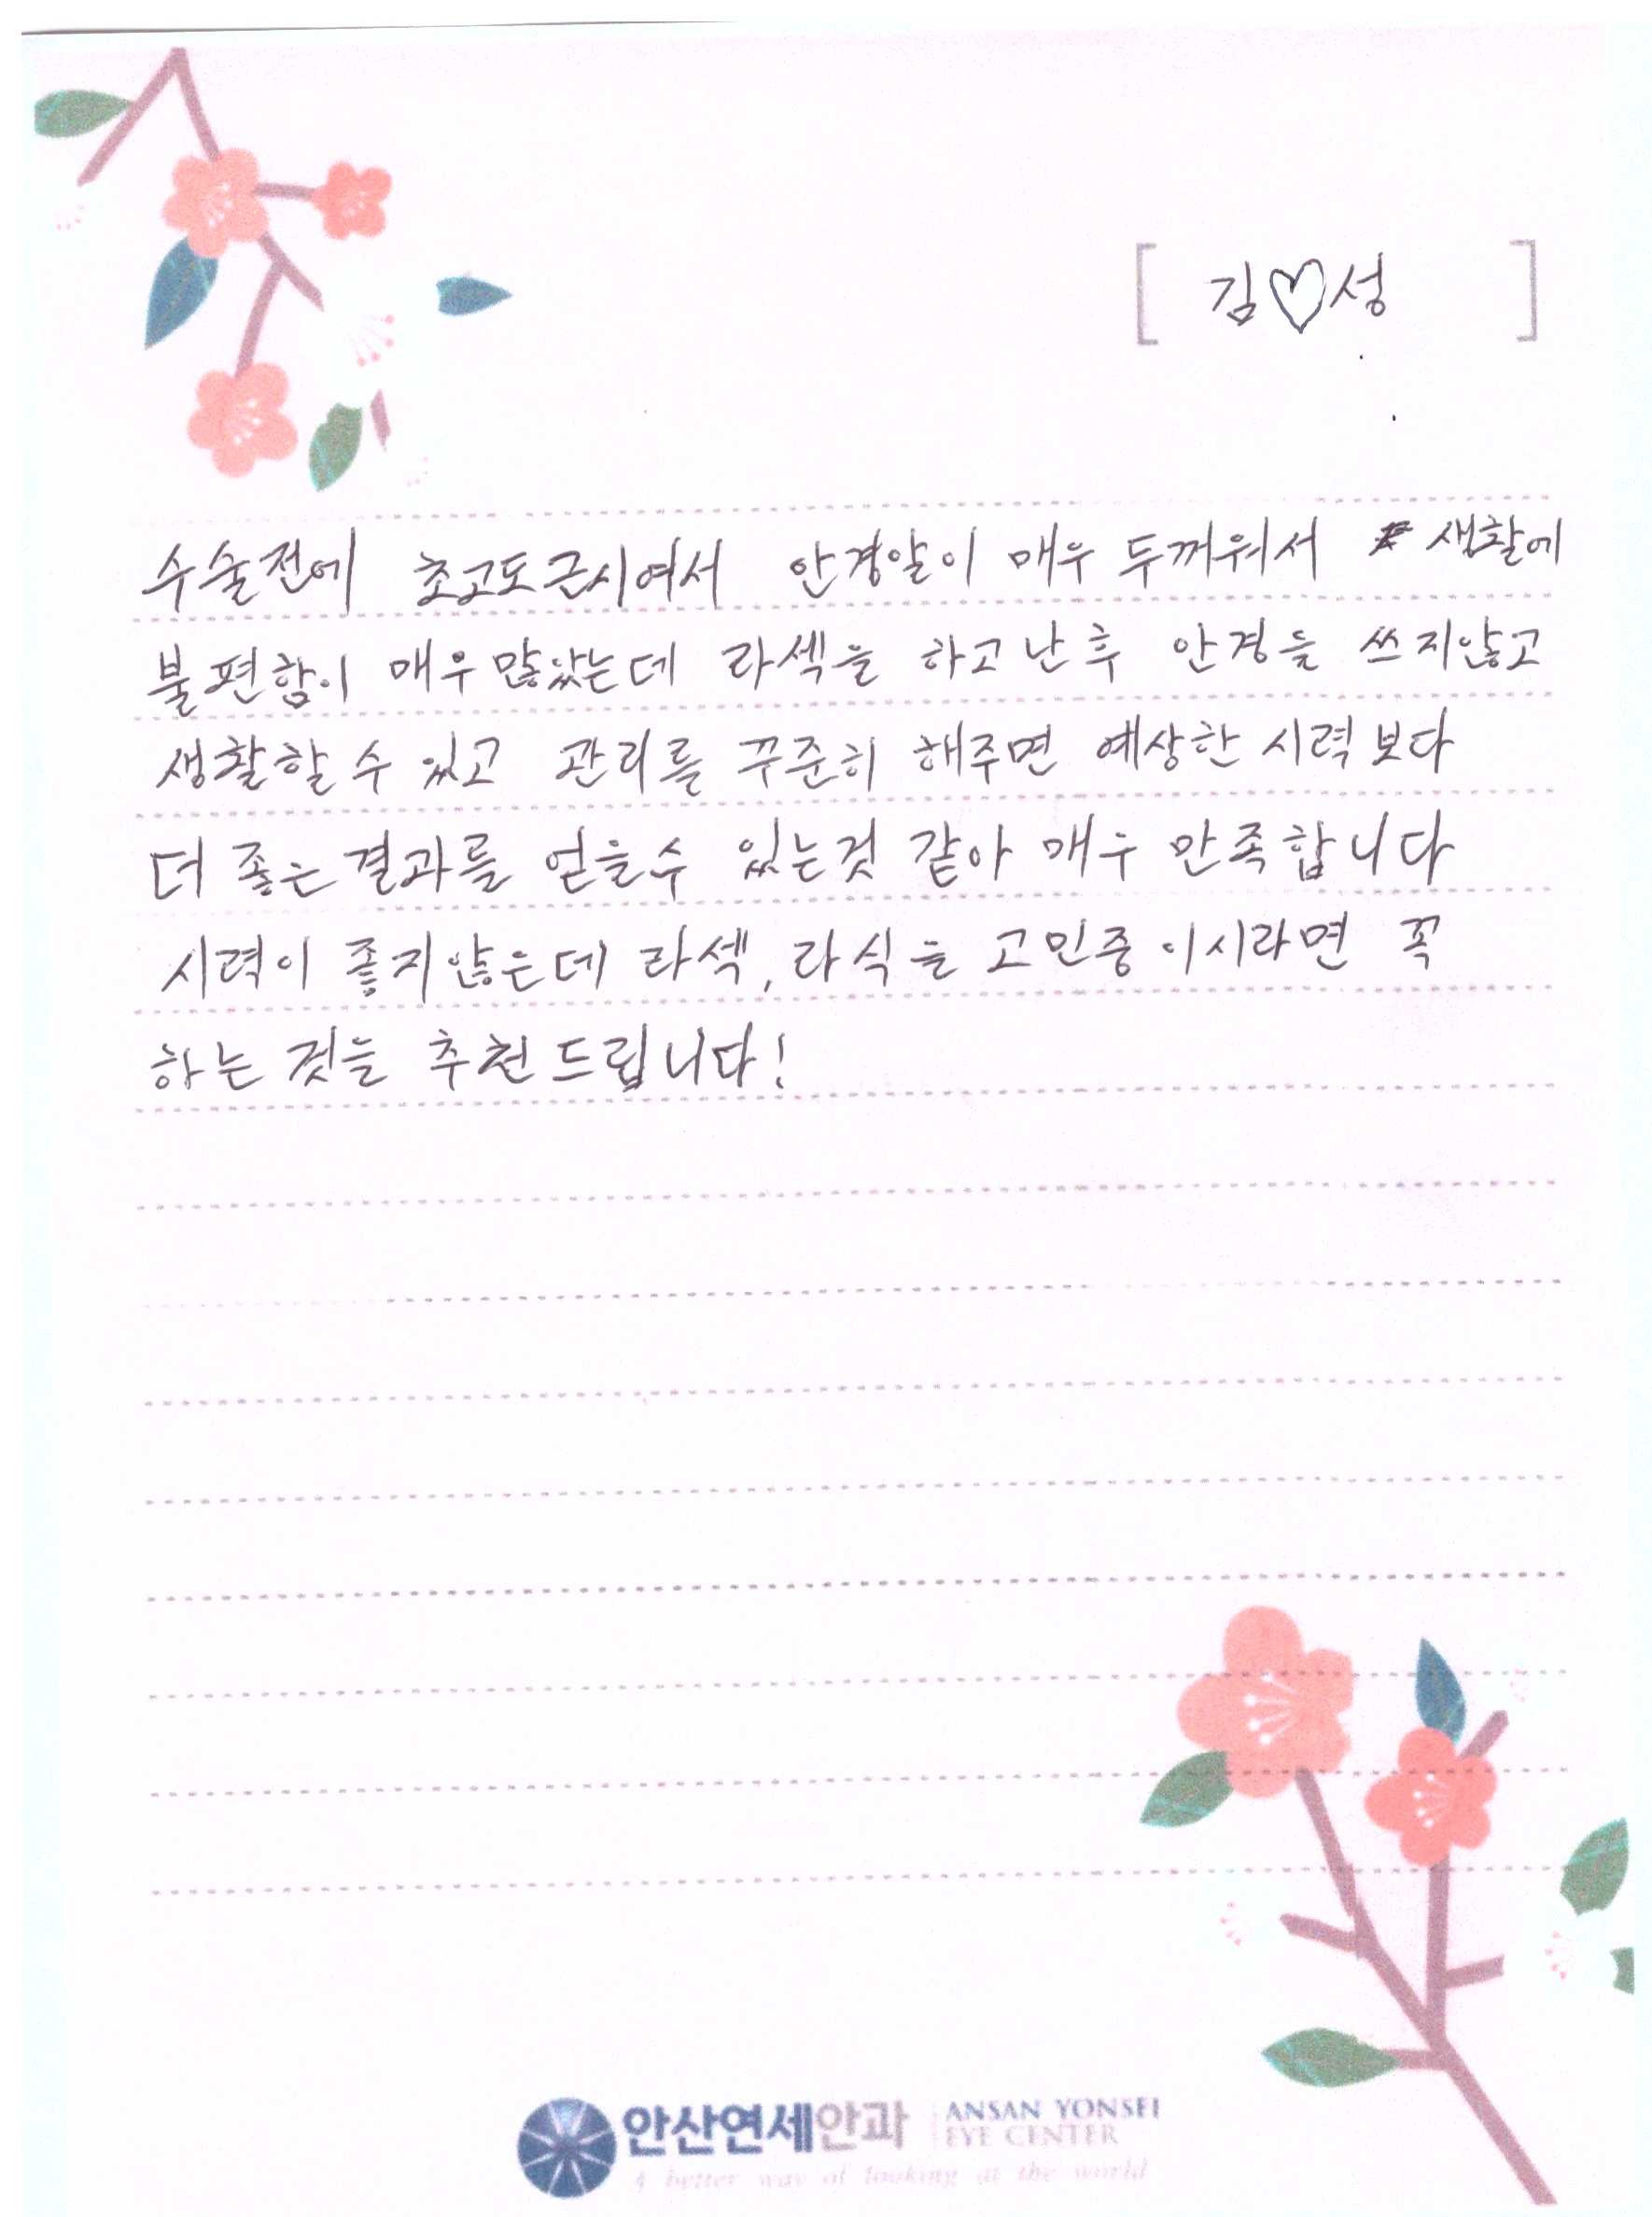 [ 김♡성 ]
수술전에 초고도근시여서 안경알이 매우 두꺼워서 생활에
불편함이 매우 많았는데 라섹을 하고난 후 안경을 쓰지않고
생활할 수 있고 관리를 꾸준히 해주면 예상한 시력보다
더 좋은 결과를 얻을수 있는것 같아 매우 만족합니다
시력이 좋지않은데 라섹, 라식을 고민중이시라면 꼭
하는 것을 추천드립니다!
안산연세안과 ANSAN YONSEI
EYE CENTER
A better way of looking at the world